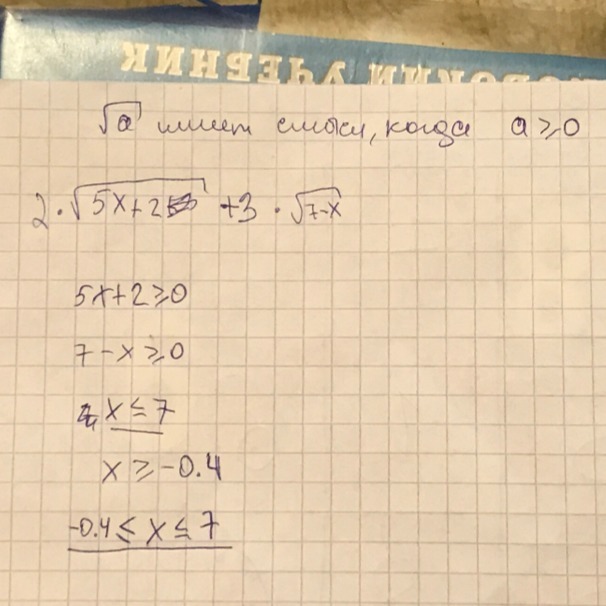 ШИРОКИЙ УЧЕБНИК
√a имеет смысл, когда a ≥ 0
2 · √5x+2 + 3 · √7-x
5x+2 ≥ 0
7 - x ≥ 0
x ≤ 7
x ≥ -0.4
-0.4 ≤ x ≤ 7